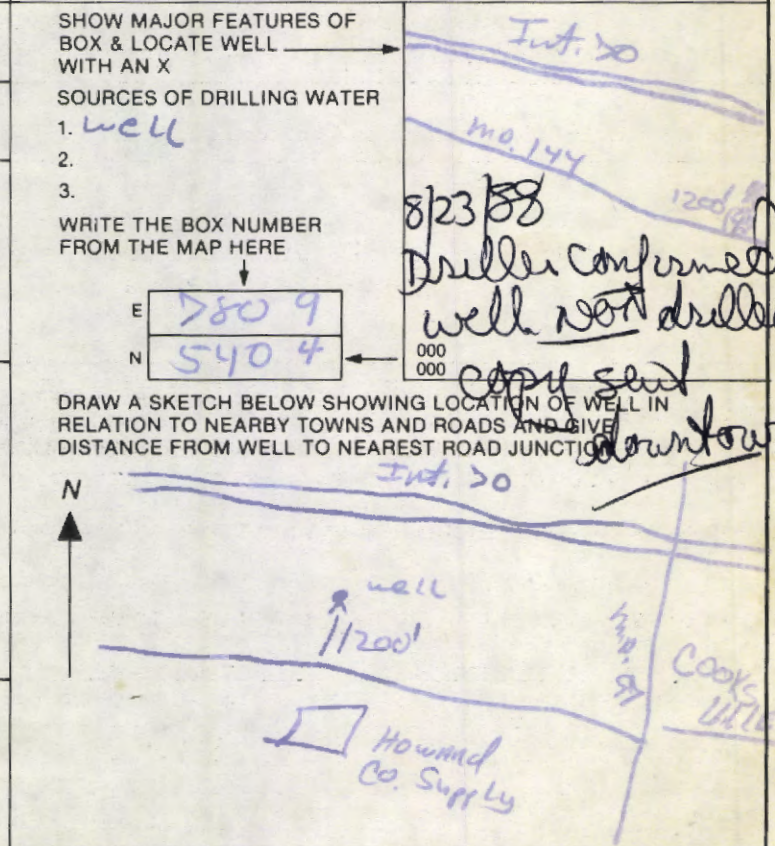 SHOW MAJOR FEATURES OF
BOX & LOCATE WELL
WITH AN X
SOURCES OF DRILLING WATER
1. well
2.
3.
WRITE THE BOX NUMBER
FROM THE MAP HERE
E 7809
N 5404
Int. 70
MD. 144
1200'
8/23/88
Driller Confirmed
well NOT drille
000
000
copy sent
downtow
DRAW A SKETCH BELOW SHOWING LOCATION OF WELL IN
RELATION TO NEARBY TOWNS AND ROADS AND GIVE
DISTANCE FROM WELL TO NEAREST ROAD JUNCTION
N
Int. 70
well
1200'
MD. 97
COOKS
VILLE
Howard
Co. Supply